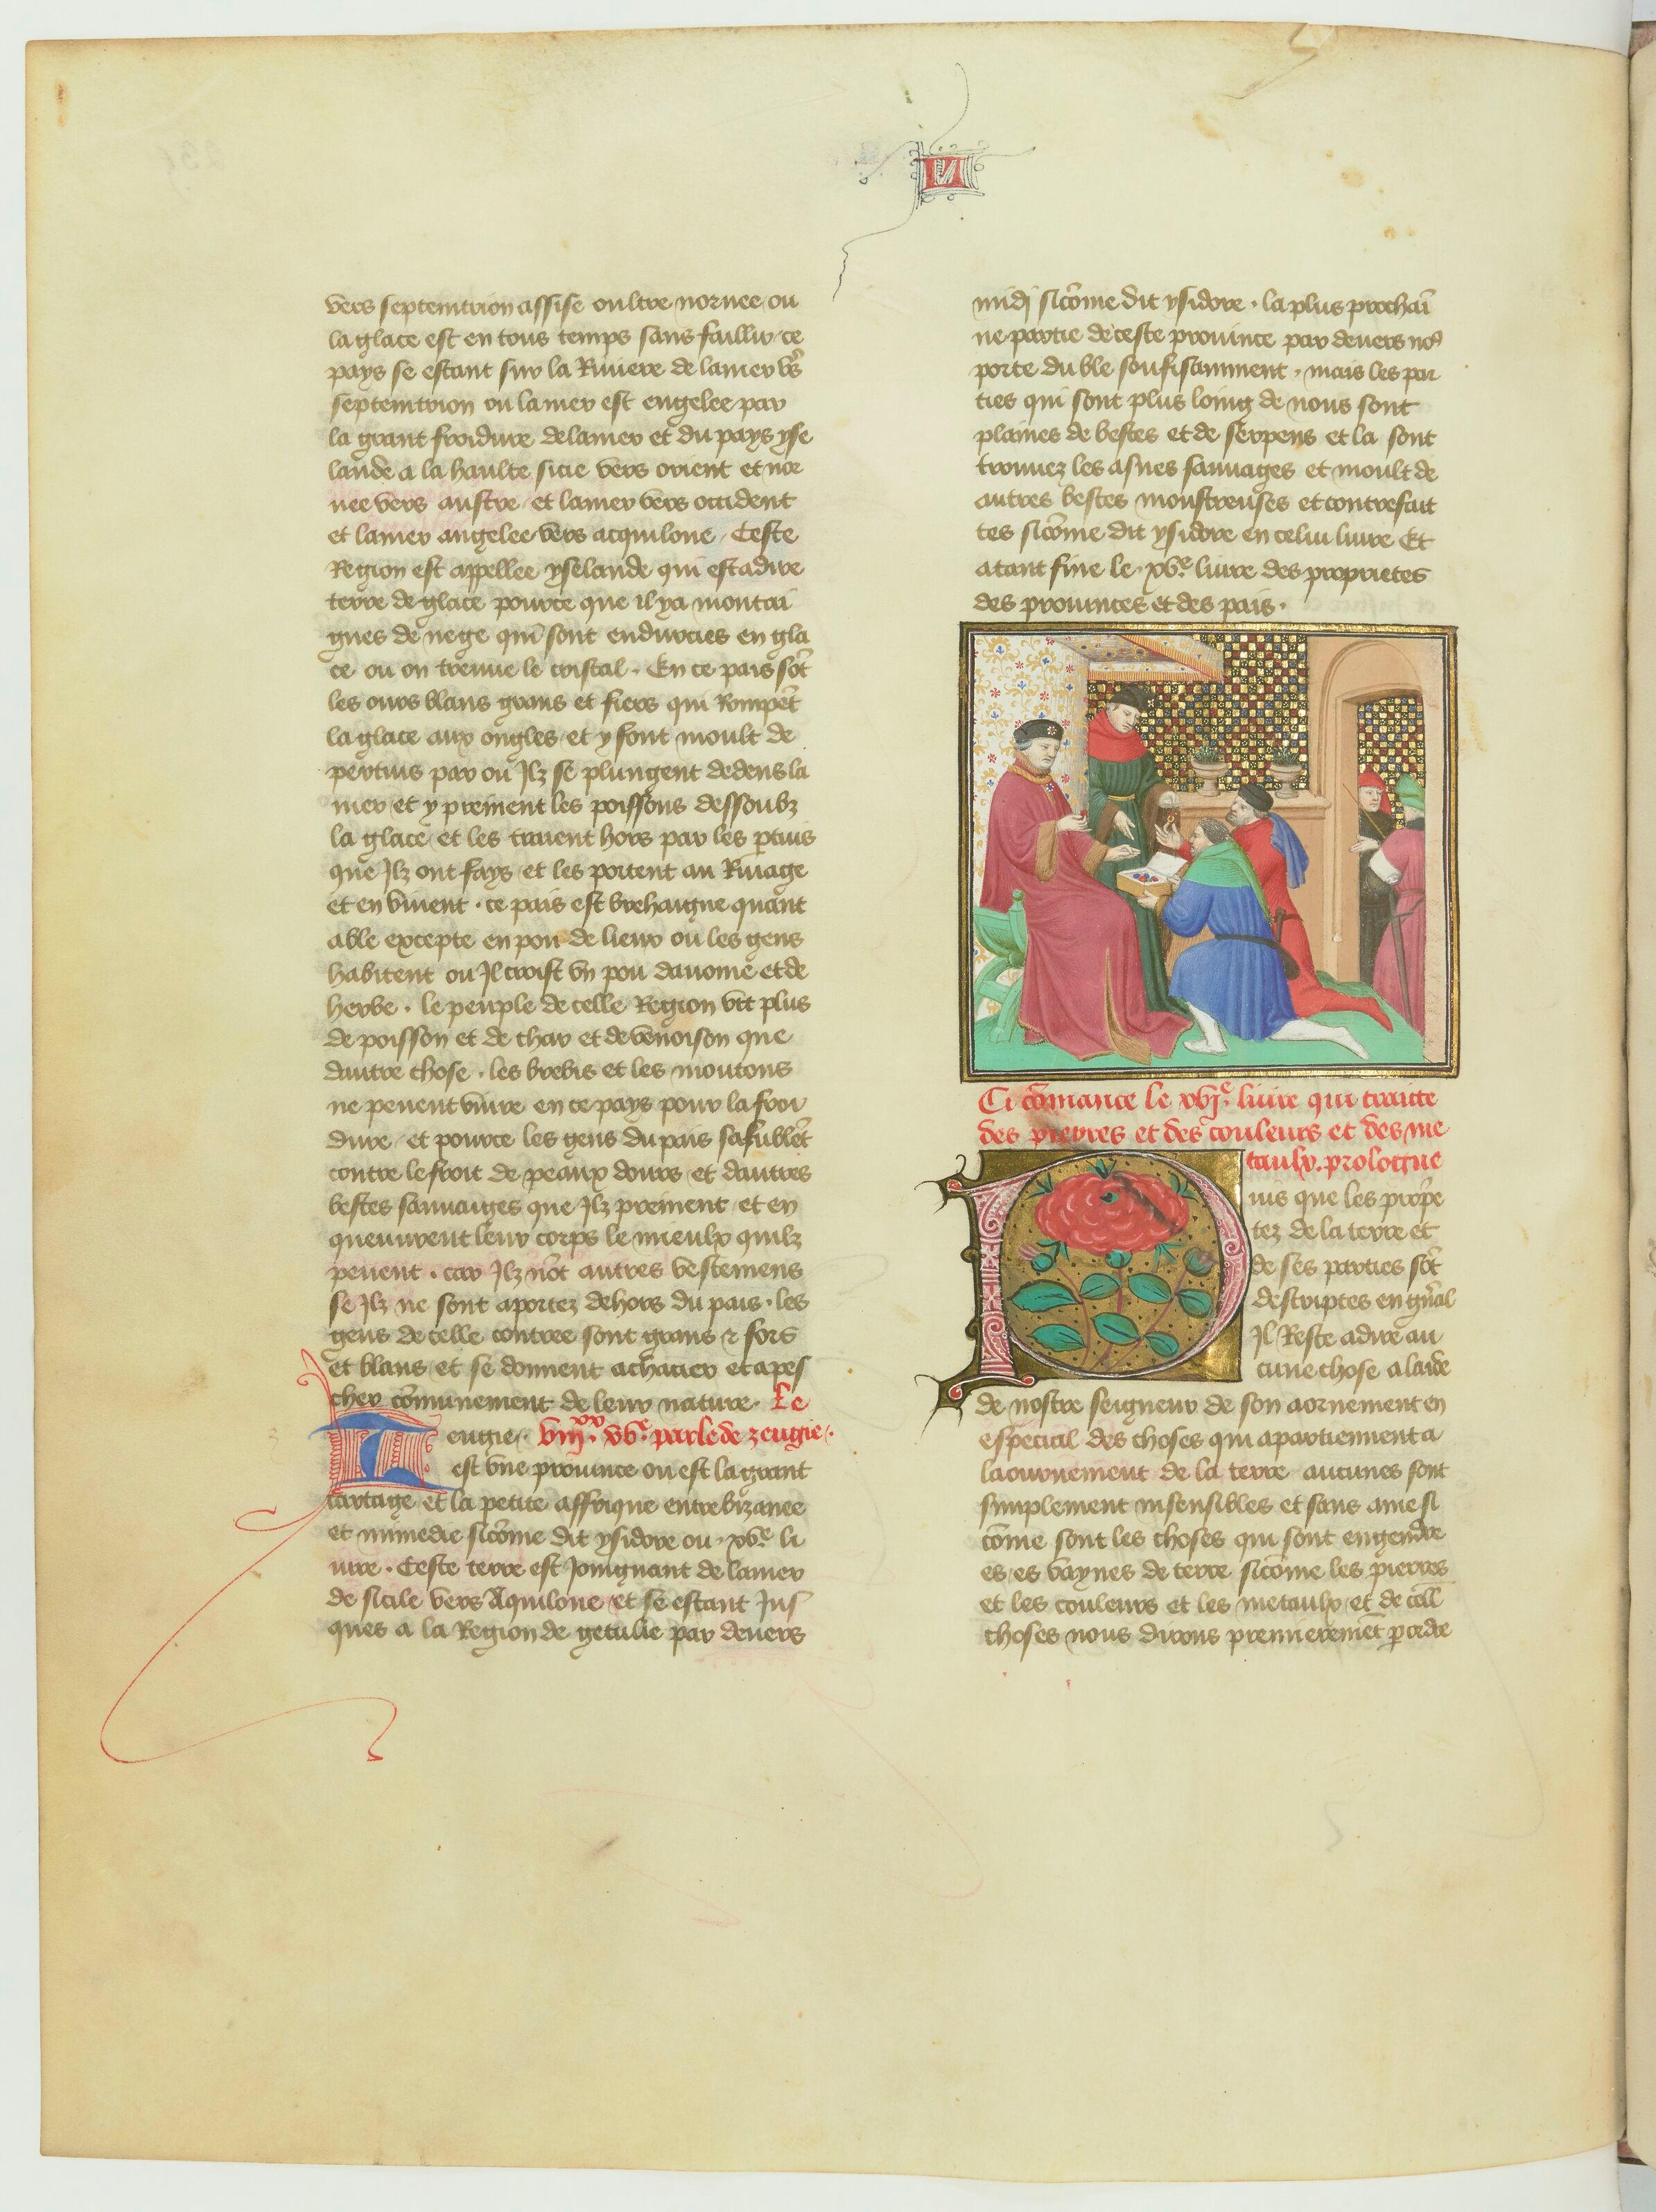 vers septemtrion assise oultre nornee ou
la glace est en tous temps sans faillir ce
pays se estant sur la Riuiere de la mer v̉s
septemtrion ou la mer est engelee par
la grant froidure de la mer et du pays yse
lande a la haulte sicie vers orient et nor
nee vers austre et la mer vers occident
et la mer angelee vers acquilone Ceste
Region est appellee yselande qui est a dire
terre de glace pource que il y a montai
gnes de nege qui sont endurcies en gla
ce ou on treuue le cristal. En ce pais sōt
les ours blans grans et fiers qui Rompēt
la glace aux ongles et y font moult de
pertuis par ou Ilz se plungent dedens la
mer et y preinent les poissons dessoubz
la glace et les traient hors par les ptuis
que Ilz ont fays et les portent au Riuage
et en viuent. ce pais est brehaigne quant
able excepte en pou de lieux ou les gens
habitent ou Il croist vn pou dauoine et de
herbe. le peuple de celle Region vit plus
de poisson et de char et de venoison que
dautre chose. les brebis et les moutons
ne peuent viure en ce pays pour la froi
dure et pource les gens du pais safublēt
contre le froit de peaux dours et dautres
bestes sauuaiges que Ilz preinent et en
queuurent leur corps le mieulx quilz
peuent. car Ilz nōt autres vestemens
se Ilz ne sont aportez dehors du pais. les
gens de celle contree sont grans ⁊ fors
et blans et se donnent a chacier et a pes
cher cōmunement de leur nature. Le
eugie. viij.xx xve. parle de zeugie.
est vne prouince ou est la grant
cartage et la petite affrique entre bizanee
et numedie sicōme dit ysidore ou .xve. li
ure. Ceste terre est Joingnant de la mer
de sicile vers Aquilone et se estant Jus
ques a la Region de getulie par deuers
midj sicōme dit ysidore. la plus prochai
ne partie de ceste prouince par deuers no9
porte du ble soufisamment. mais les par
ties qui sont plus loing de nous sont
plaines de bestes et de serpens et la sont
trouuez les asnes sauuages et moult de
autres bestes monstreuses et contrefait
tes sicōme dit ysidore en celui liure Et
atant fine le .xve. liure des proprietes
des prouinces et des pais.
Ci cōmance le xvje. liure qui traitte
des pierres et des couleurs et des me
taulx. prologue
Puis que les propre
tez de la terre et
de ses parties sōt
descriptes en gñal
Il Reste a dire au
cune chose a laide
de nostre seigneur de son aornement en
especial des choses qui apartiennent a
laournement de la terre aucunes sont
simplement insensibles et sans ame si
cōme sont les choses qui sont engendre
es es vaynes de terre sicōme les pierres
et les couleurs et les metaulx et de cell
choses nous dirons premieremēt p ordre